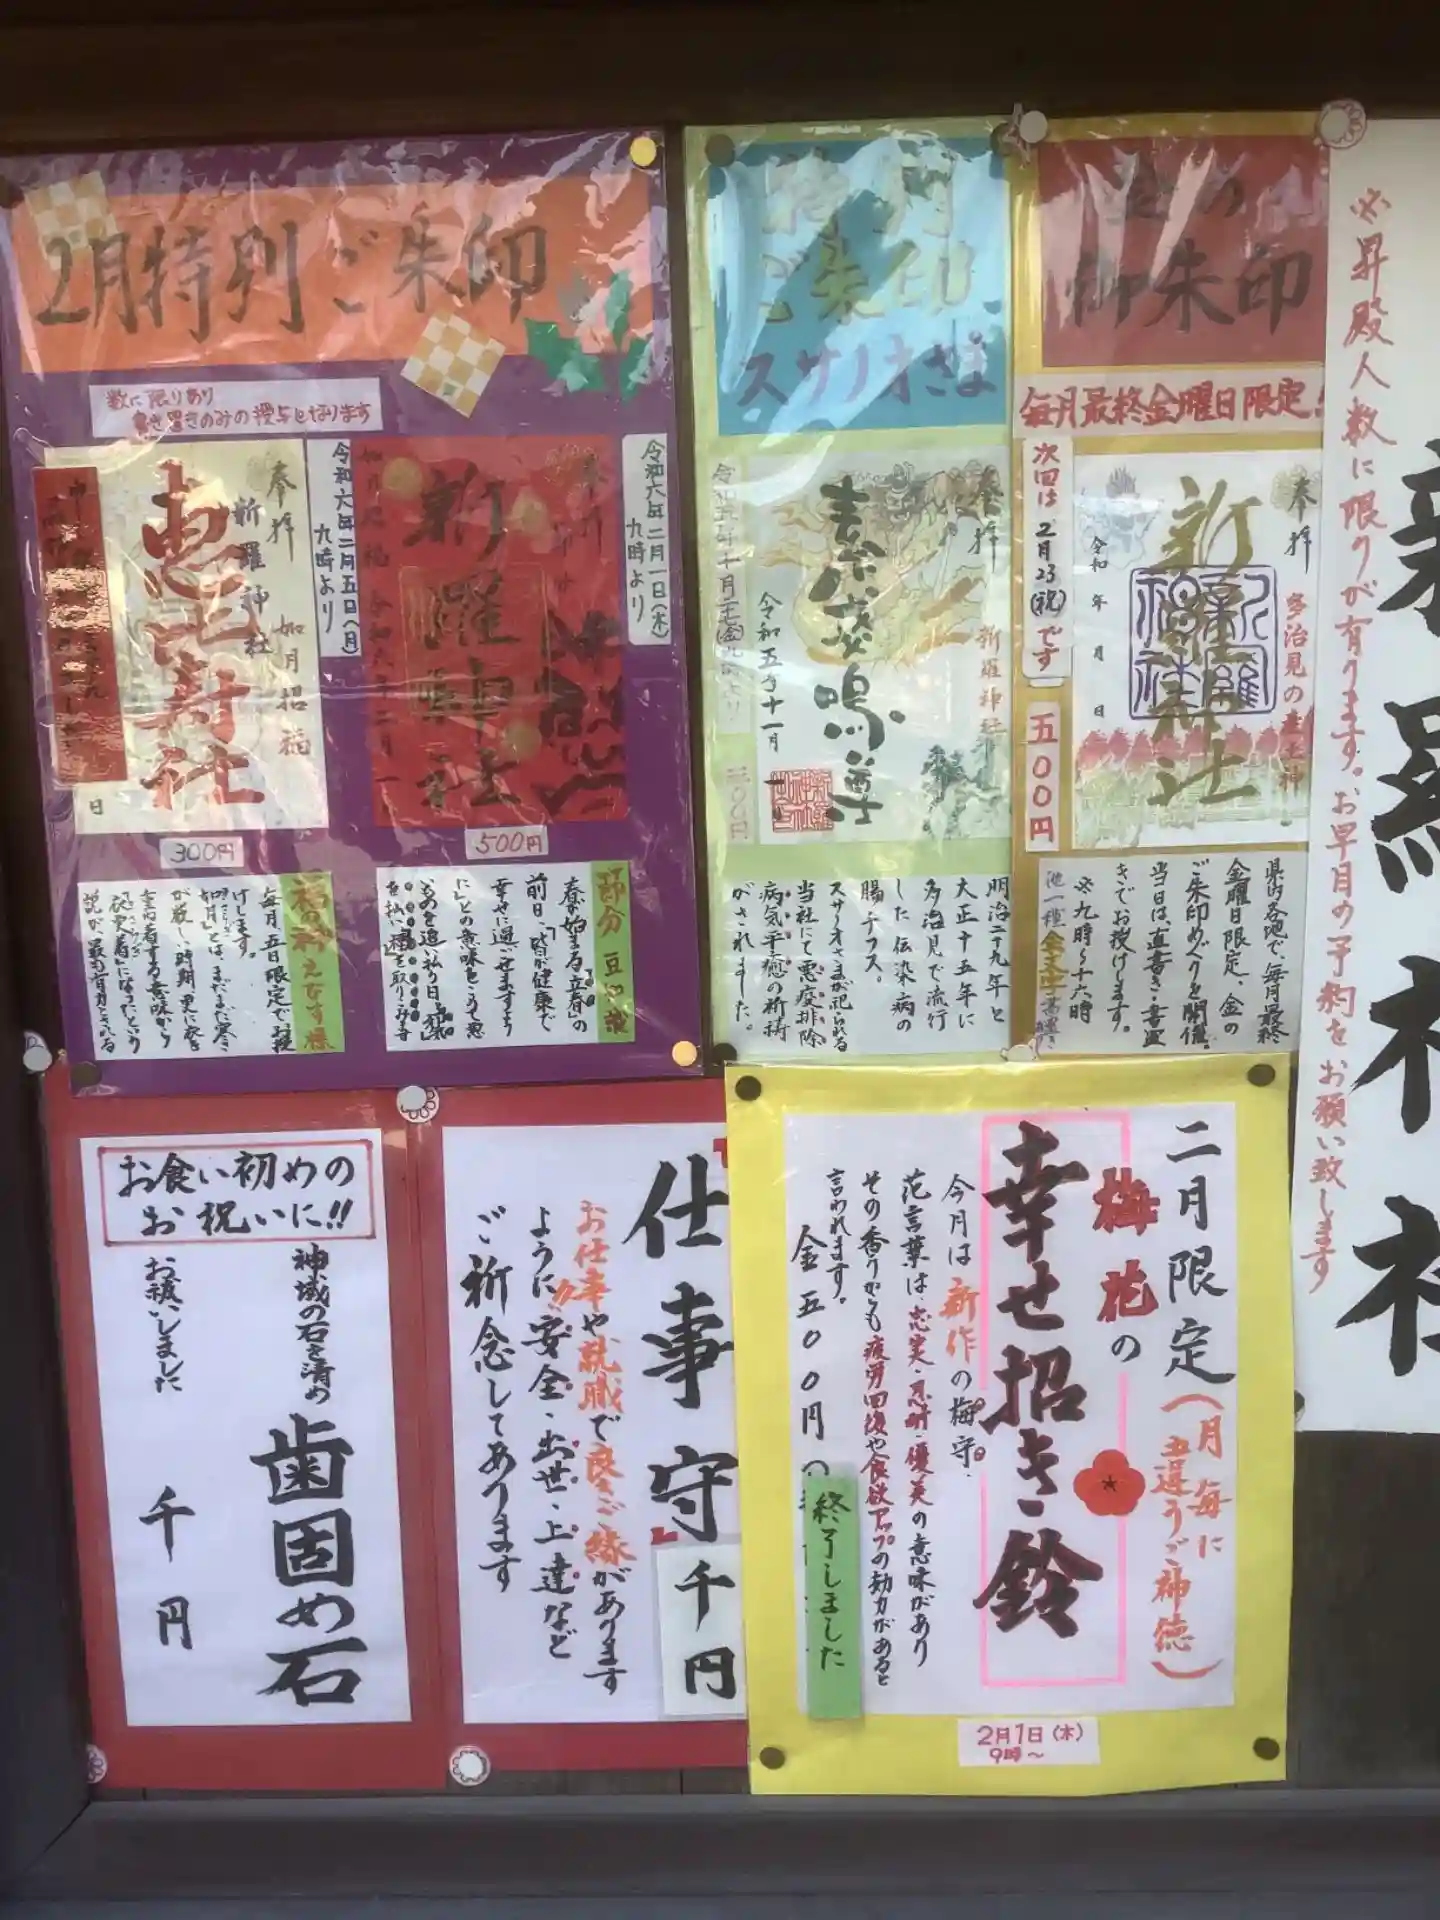 2月特別ご朱印
数に限りあり
書き置きのみの授与となります
令和六年二月一日(木)
九時より
奉拝
新羅神社
500円
令和六年二月五日(月)
九時より
奉拝
如月招福
新羅神社
恵比寿社
日
300円
節分
春が始まる「立春」の
前日、「皆が健康で
幸せに過ごせますよう
に」との意味をこめて悪
いものを追い払う日
福の神えびす様
毎月、五日限定でお授
けします。
「如月」とは、まだまだ寒さ
が厳しい時期、更に衣を
重ね着する意味から
説が、最も有力とされる
ご朱印
スサノオさま
奉拝
新羅神社
素盞嗚尊
令和五年十一月
三〇〇円
明治二十九年と
大正十五年に
多治見で流行
した伝染病の
腸チフス。
スサノオさまが祀られる
当社にて悪疫排除
病気平癒の祈祷
がされました。
金の
御朱印
毎月最終金曜日限定!
次回は2月23(祝)です
五〇〇円
奉拝
多治見の産土神
新羅神社
令和 年 月 日
県内各地で、毎月最終
金曜日限定、金の
ご朱印めぐりを開催。
当日は、直書き・書置
きでお授けします。
※九時〜十六時
※昇殿人数に限りが有ります。お早目の予約をお願い致します
新羅神社
お食い初めの
お祝いに!!
神域の石を清め
お祓いしました
歯固め石
千円
仕事守
お仕事や就職で良きご縁があります
ように"安全・出世・上達など
ご祈念してあります
千円
二月限定(月毎に違うご神徳)
梅花の
幸せ招き鈴
今月は新作の梅守、
花言葉は、忠実・忍耐・優美の意味があり
その香りからも疲労回復や食欲アップの効力があると
言われます。
金五〇〇円
終了しました
2月1日(木)
9時〜